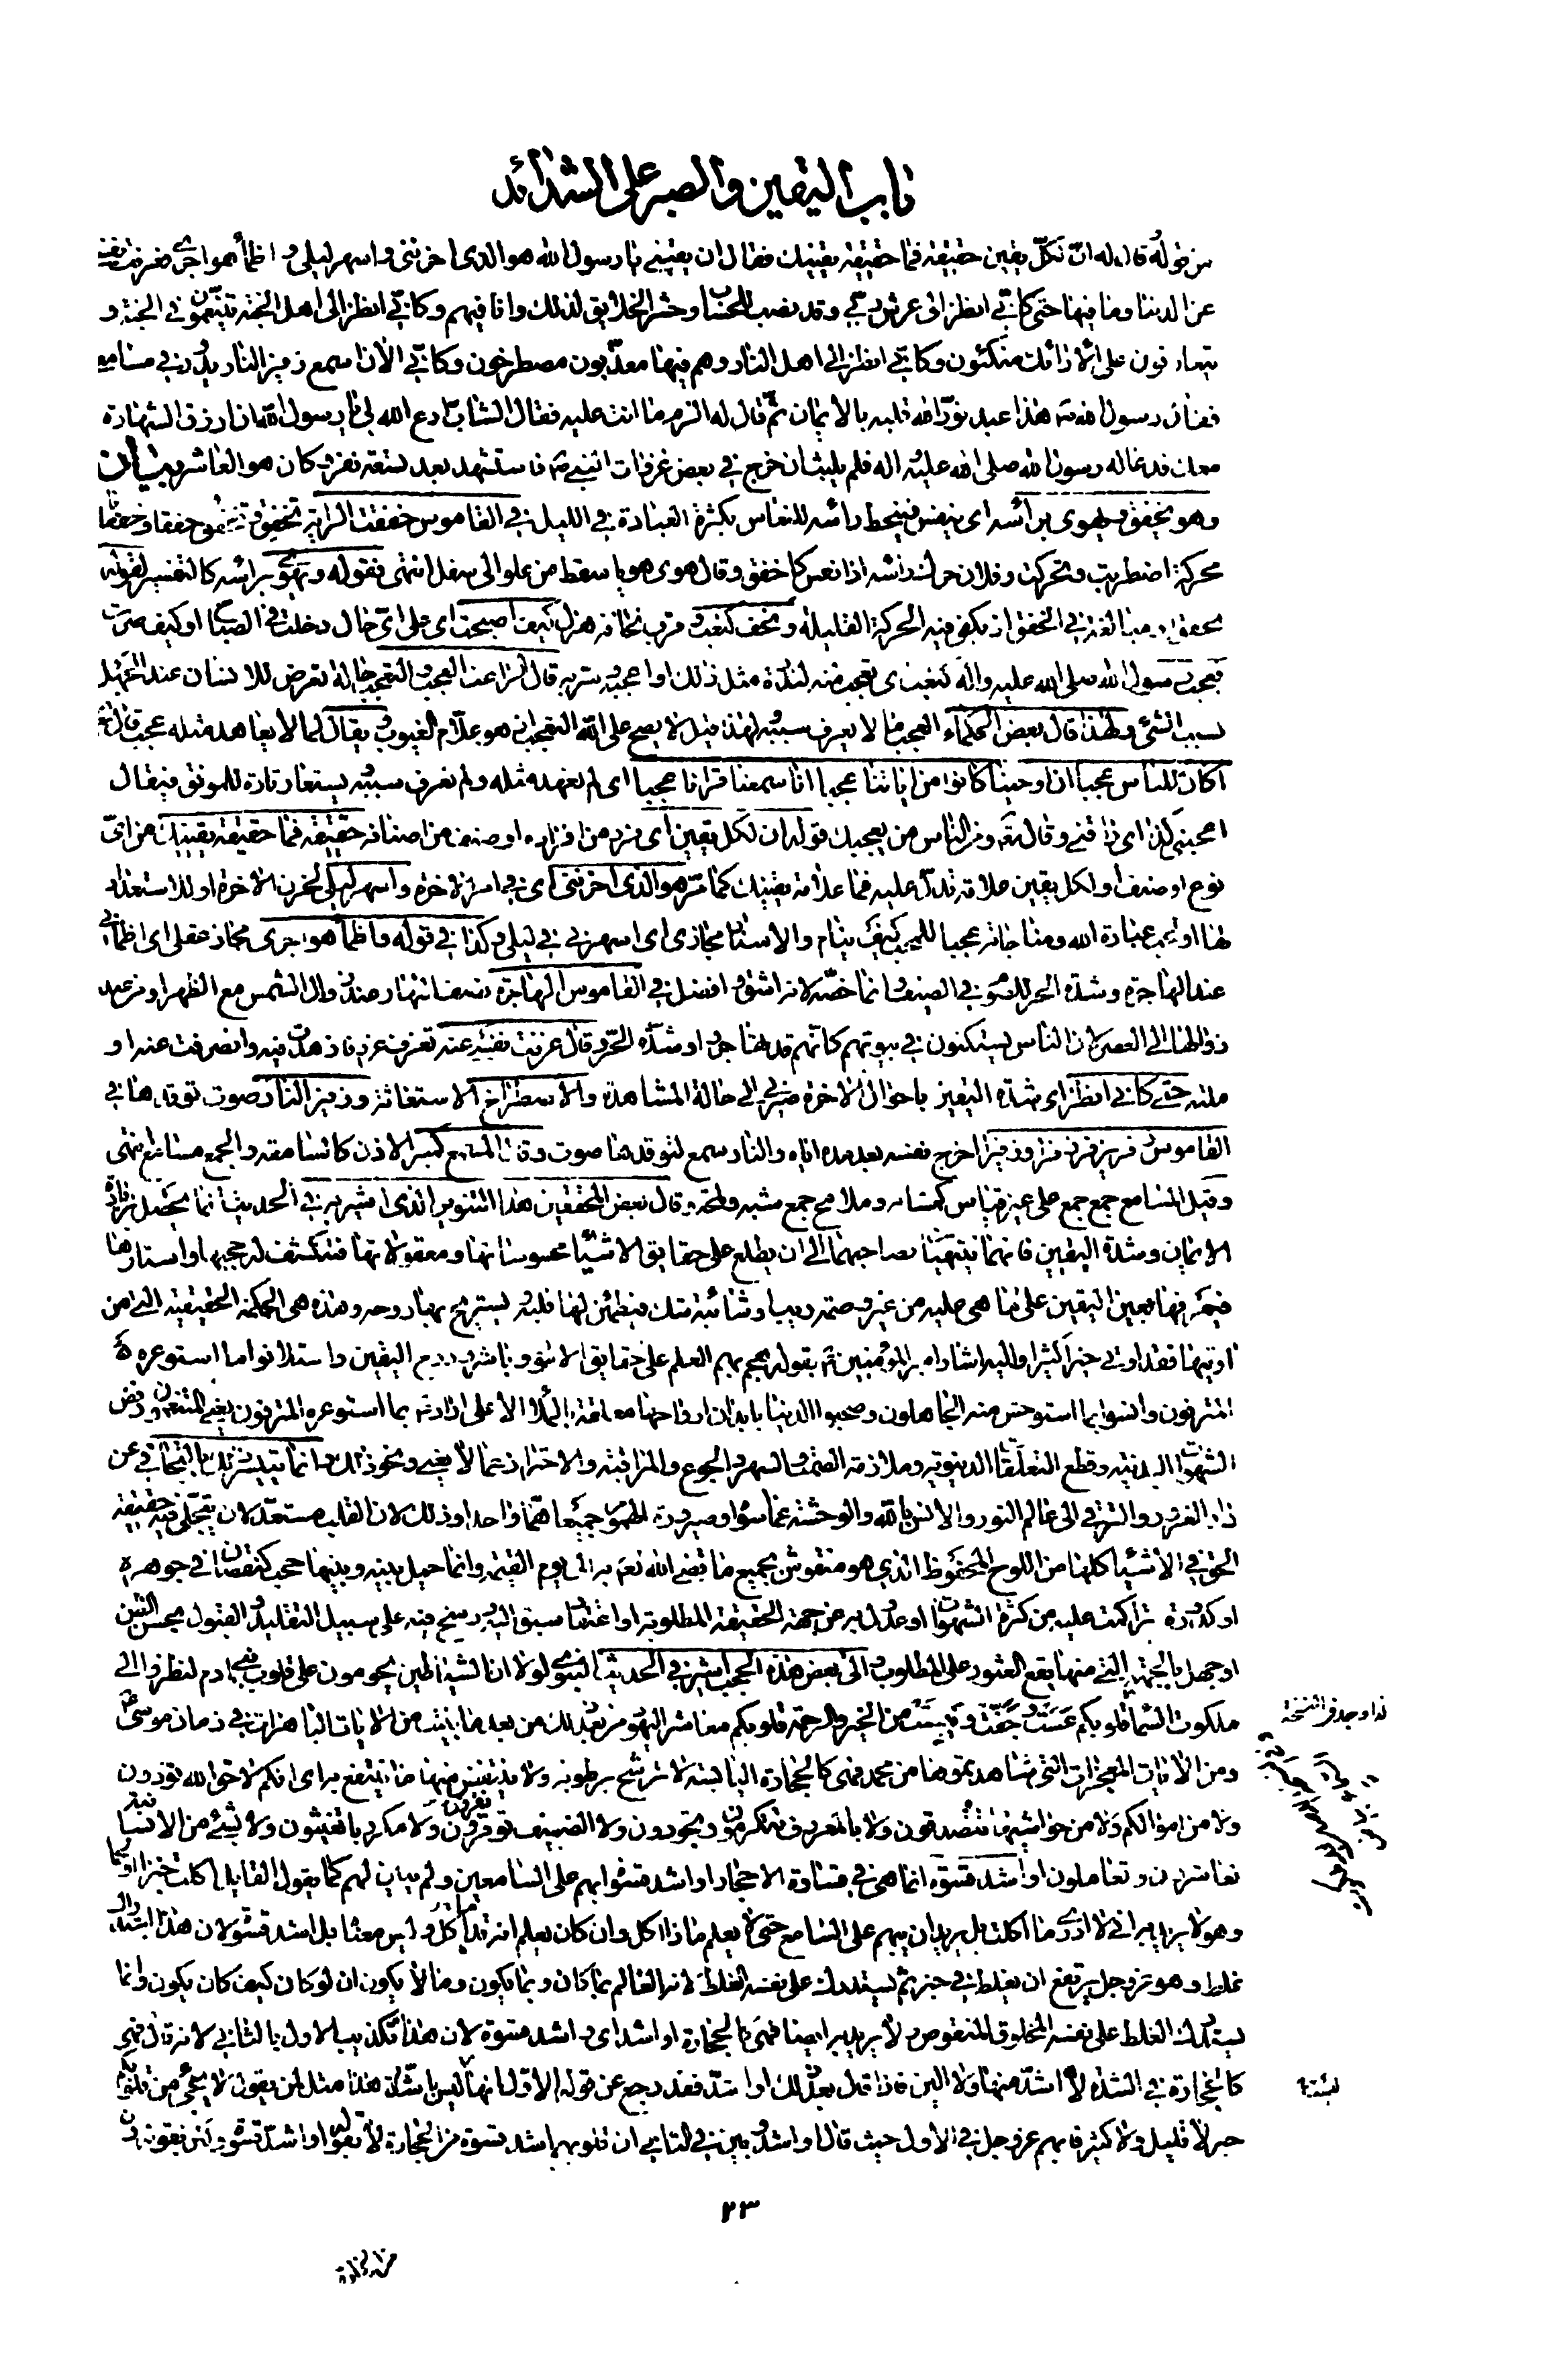 باب اليقين والصبر على الشدائد
من قوله قال له ان لكل يقين حقيقة فما حقيقة يقينك فقال ان يقيني يا رسول الله هو الذي احزنني واسهر ليلي و اظمأ هواجري فعزفت نفسي
عن الدنيا وما فيها حتى كاني انظر الى عرش ربي وقد نصب للحساب وحشر الخلايق لذلك وانا فيهم وكاني انظر الى اهل الجنة يتنعمون في الجنة و
يتعارفون على الارائك متكئون وكاني انظر الى اهل النار وهم فيها معذبون مصطرخون وكاني الان اسمع زفير النار يدور في مسامعي
فقال رسول الله ص هذا عبد نور الله قلبه بالايمان ثم قال له الزم ما انت عليه فقال الشاب ادع الله لي يا رسول الله ان ارزق الشهادة
معك فدعا له رسول الله صلى الله عليه واله فلم يلبث ان خرج في بعض غزوات النبي ص فاستشهد بعد تسعة نفر وكان هو العاشر بيان
وهو يخفق ويهوي براسه اي ينعس فينحط راسه للنعاس بكثرة العبادة في الليل في القاموس خفقت الراية تخفق وتخفق خفقا وخفقانا
محركة اضطربت وتحركت وفلان حرك راسه اذا نعس كاخفق وقال هوى هويا سقط من علو الى سفل انتهى فقوله ويهوي براسه كالتفسير لقوله
يخفق او مبالغة في الخفق اذ يكفي فيه الحركة القليلة ونحف كتعب وقرب نحافة هزل كيف اصبحت اي على اي حال دخلت في الصباح او كيف صرت
فعجب رسول الله صلى الله عليه واله كتعب اي تعجب منه لندرة مثل ذلك او اعجبه وسر به قال الراغب العجب والتعجب حالة تعرض للانسان عند الجهل
بسبب الشيء ولهذا قال بعض الحكماء العجب ما لا يعرف سببه لهذا قيل لا يصح على الله التعجب اذ هو علام الغيوب يقال لما لا يعاهد مثله عجب قال تع
اكان للناس عجبا ان اوحينا كانوا من اياتنا عجبا انا سمعنا قرانا عجبا اي لم نعهد مثله ولم نعرف سببه يستعار تارة للمونق فيقال
اعجبني كذا اي راقني وقال تع ومن الناس من يعجبك قوله ان لكل يقين اي فرد من افراده او صنف من اصنافه حقيقة فما حقيقة يقينك من اي
نوع او صنف او لكل يقين علامة تدل عليه فما علامة يقينك كما مر هو الذي احزنني اي في امر الاخرة واسهر ليلي لحزن الاخرة او للاستعداد
لها او لحب عبادة الله ومناجاته عجبا للمحب كيف ينام والاسناد مجازي اي اسهرني في ليلي وكذا في قوله واظمأ هواجري مجاز عقلي اي اظمأني
عند الهاجرة وشدة الحر للصوم في الصيف وانما خصه لانه اشق وافضل في القاموس الهاجرة نصف النهار عند زوال الشمس مع الظهر او من عند
زوالها الى العصر لان الناس يستكنون في بيوتهم كانهم قد تهاجروا وشدة الحر وقال عزفت نفسي عنه تعزف عزوفا زهدت فيه وانصرفت عنه او
ملته حتى كاني انظر اي شدة اليقين باحوال الاخرة صيرني الى حالة المشاهدة والاصطراخ الاستغاثة وزفير النار صوت توقدها في
القاموس زفر يزفر زفرا وزفيرا اخرج نفسه بعد مده اياه والنار سمع لتوقدها صوت وقال المسمع كمنبر الاذن كالسامعة والجمع مسامع انتهى
وقيل المسامع جمع جمع على غير قياس كمشابه وملامح جمع مشبه ولمحة وقال بعض المحققين هذا التنوير الذي اشير به في الحديث انما يحصل بزيادة
الايمان وشدة اليقين فانهما ينتهيان بصاحبهما الى ان يطلع على حقايق الاشياء محسوساتها ومعقولاتها فتنكشف له حجبها واستارها
فيعرفها بعين اليقين على ما هي عليه من غير وصمة ريب او شائبة شك فيطمئن لها قلبه ويستريح بها روحه وهذه هي الحكمة الحقيقية التي من
اوتيها فقد اوتي خيرا كثيرا واليه اشار امير المؤمنين ع بقوله هجم بهم العلم على حقايق الامور وباشروا روح اليقين واستلانوا ما استوعره
المترفون وانسوا بما استوحش منه الجاهلون وصحبوا الدنيا بابدان ارواحها معلقة بالملأ الاعلى اراد ع بما استوعره المترفون يعني المتنعمون رفض
الشهوات البدنية وقطع التعلقات الدنيوية وملازمة الصمت والسهر والجوع والمراقبة والاحتراز عما لا يعني ونحو ذلك وانما يتيسر ذلك بالتجافي عن
دار الغرور والترقي الى عالم النور والانس بالله والوحشة عما سواه وصيرورة الهموم جميعا هما واحدا وذلك لان القلب مستعد لان يتجلى فيه حقيقة
الحق في الاشياء كلها من اللوح المحفوظ الذي هو منقوش بجميع ما قضى الله تعالى به الى يوم القيمة وانما حيل بينه وبينها حجب كنقصان في جوهره
او كدورة تراكمت عليه من كثرة الشهوات او عدول به عن جهة الحقيقة المطلوبة او اعتقاد سبق اليه ورسخ فيه على سبيل التقليد والقبول بحسن الظن
او جهل بالجهة التي منها يقع العثور على المطلوب والى بعض هذه الحجب اشير في الحديث النبوي لولا ان الشياطين يحومون على قلوب بني ادم لنظروا الى
ملكوت السماء قلوبكم عست وجفت ويبست من الخير والرحمة قلوبكم معاشر اليهود من بعد ذلك من بعد ما تبينت من الايات الباهرات في زمان موسى ع
ومن الايات المعجزات التي شاهدتموها من محمد فهي كالحجارة اليابسة لا ترشح برطوبة ولا ينتفض منها ما ينتفع به اي انكم لا حق الله تؤدون
ولا من اموالكم ولا من حواشيها تتصدقون ولا بالمعروف تتكرمون وتجودون ولا الضيف تقرون ولا مكروبا تغيثون ولا بشيء من الانسانية
تعاشرون وتعاملون او اشد قسوة انما هي في قساوة الاحجار او اشد قسوة ابهم على السامعين ولم يبين لهم كما يقول القايل اكلت خبزا او لحما
وهو لا يريد به اني لا ادري ما اكلت بل يريد ان يبهم على السامع حتى لا يعلم ماذا اكل وان كان يعلم انه قد اكل وليس معناه بل اشد قسوة لان هذا استدراك
غلط وهو عز وجل يرتفع ان يغلط في خبر ثم يستدرك على نفسه الغلط لانه العالم بما كان وبما يكون وما لا يكون ان لو كان كيف كان يكون وانما
يستدرك الغلط على نفسه المخلوق المنقوص ولا يريد به ايضا فهي كالحجارة او اشد اي واشد قسوة لان هذا تكذيب الاول بالثاني لانه قال فهي
كالحجارة في الشدة لا اشد منها ولا الين فاذا قال بعد ذلك او اشد فقد رجع عن قوله الاول انها ليس باشد هذا مثل لمن يقول لا يجيء من قلوبكم
خير لا قليل ولا كثير فابهم عز وجل في الاول حيث قال او اشد وبين في الثاني ان قلوبهم اشد قسوة من الحجارة لا بقوله او اشد قسوة ولكن بقوله وان
كذا وجد في النسخة
٢٣